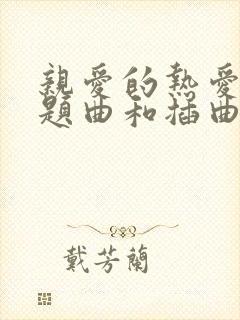 親愛的熱愛
題曲和插曲
戴芳蘭